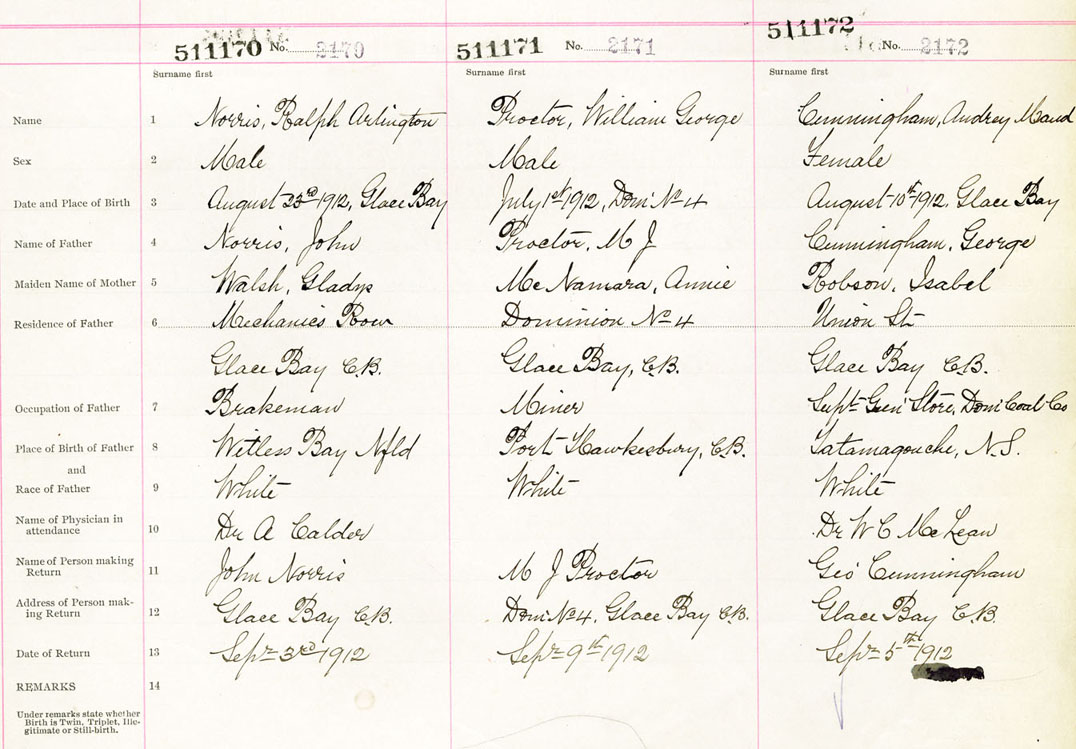 511170 No. 2170 511171 No. 2171 511172 No. 2172
Surname first Surname first Surname first
Name 1 Norris, Ralph Arlington Proctor, William George Cunningham, Audrey Maud
Sex 2 Male Male Female
Date and Place of Birth 3 August 23rd 1912, Glace Bay July 1st 1912, Dom. No 4 August 10th 1912, Glace Bay
Name of Father 4 Norris, John Proctor, M J Cunningham, George
Maiden Name of Mother 5 Walsh, Gladys Mc Namara, Annie Robson, Isabel
Residence of Father 6 Mechanics Row Dominion No 4 Union St
Glace Bay C.B. Glace Bay, C.B. Glace Bay C.B.
Occupation of Father 7 Brakeman Miner Supt Gen Store, Dom Coal Co
Place of Birth of Father 8 Witless Bay Nfld Port Hawkesbury, C.B. Tatamagouche, N.S.
and
Race of Father 9 White White White
Name of Physician in
attendance 10 Dr A Calder Dr W C McLean
Name of Person making
Return 11 John Norris M J Proctor Geo Cunningham
Address of Person mak-
ing Return 12 Glace Bay C.B. Dom. No 4, Glace Bay C.B. Glace Bay C.B.
Date of Return 13 Sepr 3rd 1912 Sepr 9th 1912 Sepr 5th 1912
REMARKS 14
Under remarks state whether
Birth is Twin, Triplet, Ille-
gitimate or Still-birth.